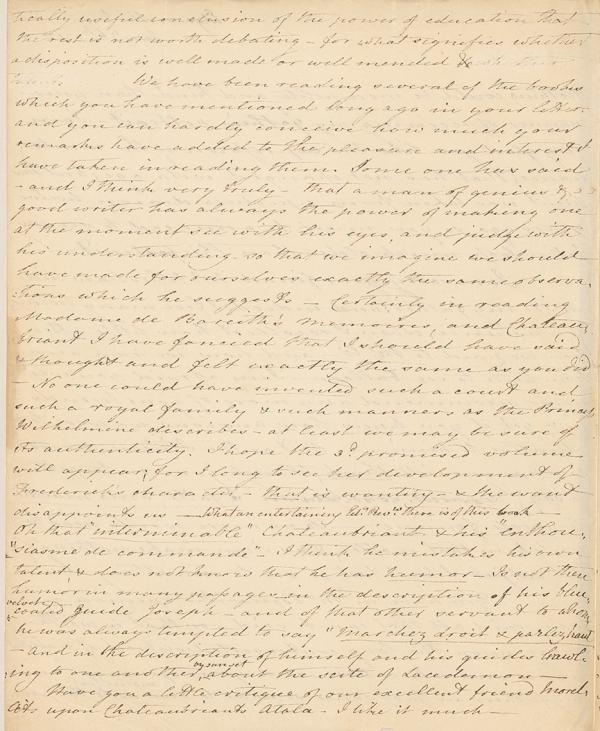 tically useful conclusion of the power of education that
the rest is not worth debating - for what signifies whether
a disposition is well made or well mended &
We have been reading several of the books
which you have mentioned long ago in your letters
and you can hardly conceive how much your
remarks have added to the pleasure and interest I
have taken in reading them. Some one has said
- and I think very truly - that a man of genius &
good writer has always the power of making one
at the moment see with his eyes, and judge with
his understanding so that we imagine we should
have made for ourselves exactly the same observa-
tions which he suggests - Certainly in reading
Madame de Bareith's memoires, and Chateau-
briant I have fancied that I should have said
& thought and felt exactly the same as you did
- No one could have invented such a court and
such a royal family & such manners as the Princess
Wilhelmine describes - at least we may be sure of
its authenticity. I hope the 3d promised volume
will appear, for I long to see her development of
Frederick's character - that is wanting - & the want
disappoints us - What an entertaining Ed: Rev:w there is of this book -
Oh that "interminable" Chateaubriant & his "enthou-
"siasme de commande" - I think he mistakes his own
talent & does not know that he has humor - Is not there
humor in many passages - in the description of his blue
velvet
coated guide Joseph - and of that other servant to whom
he was always tempted to say "Marchez droit & parlez haut
- and in the description of himself and his guides bawl-
by sunset
ing to one another, about the scite of Lacedemon -
Have you a little critique of our excellent friend Morel-
lets upon Chateaubriants Atala - I like it much -